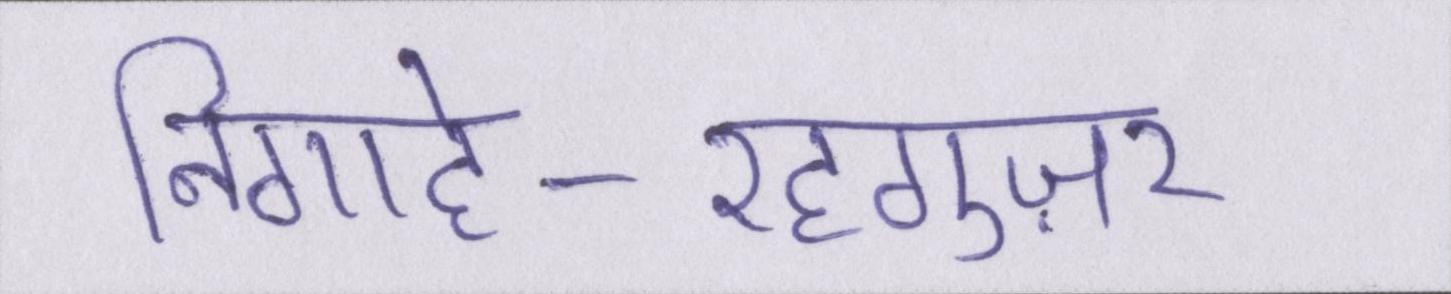 निगाहे-रहगुज़र